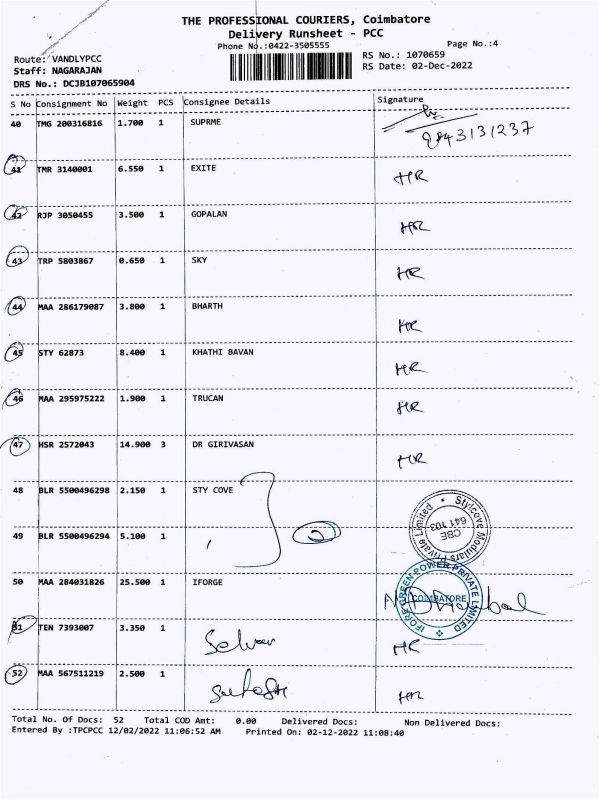 THE PROFESSIONAL COURIERS, Coimbatore
Delivery Runsheet - PCC
Phone No.:0422-3505555
Page No.:4
Route: VANDLYPCC
RS No.: 1070659
Staff: NAGARAJAN
RS Date: 02-Dec-2022
DRS No.: DCJB107065904
S No Consignment No Weight PCS Consignee Details Signature
40 TMG 200316816 1.700 1 SUPRME
9843131237
41 TMR 3140001 6.550 1 EXITE HR
42 RJP 3050455 3.500 1 GOPALAN HR
43 TRP 5803867 0.650 1 SKY HR
44 MAA 286179087 3.800 1 BHARTH HR
45 STY 62873 8.400 1 KHATHI BAVAN HR
46 MAA 295975222 1.900 1 TRUCAN HR
47 HSR 2572043 14.900 3 DR GIRIVASAN HR
48 BLR 5500496298 2.150 1 STY COVE
2
Stylcove Modulars Private Limited
CBE
641 103
49 BLR 5500496294 5.100 1
50 MAA 284031826 25.500 1 IFORGE
IFORGE GREEN POWER PRIVATE LIMITED
COIMBATORE
51 TEN 7393007 3.350 1 Selvan HR
52 MAA 567511219 2.500 1 HR
Total No. Of Docs: 52 Total COD Amt: 0.00 Delivered Docs: Non Delivered Docs:
Entered By :TPCPCC 12/02/2022 11:06:52 AM Printed On: 02-12-2022 11:08:40